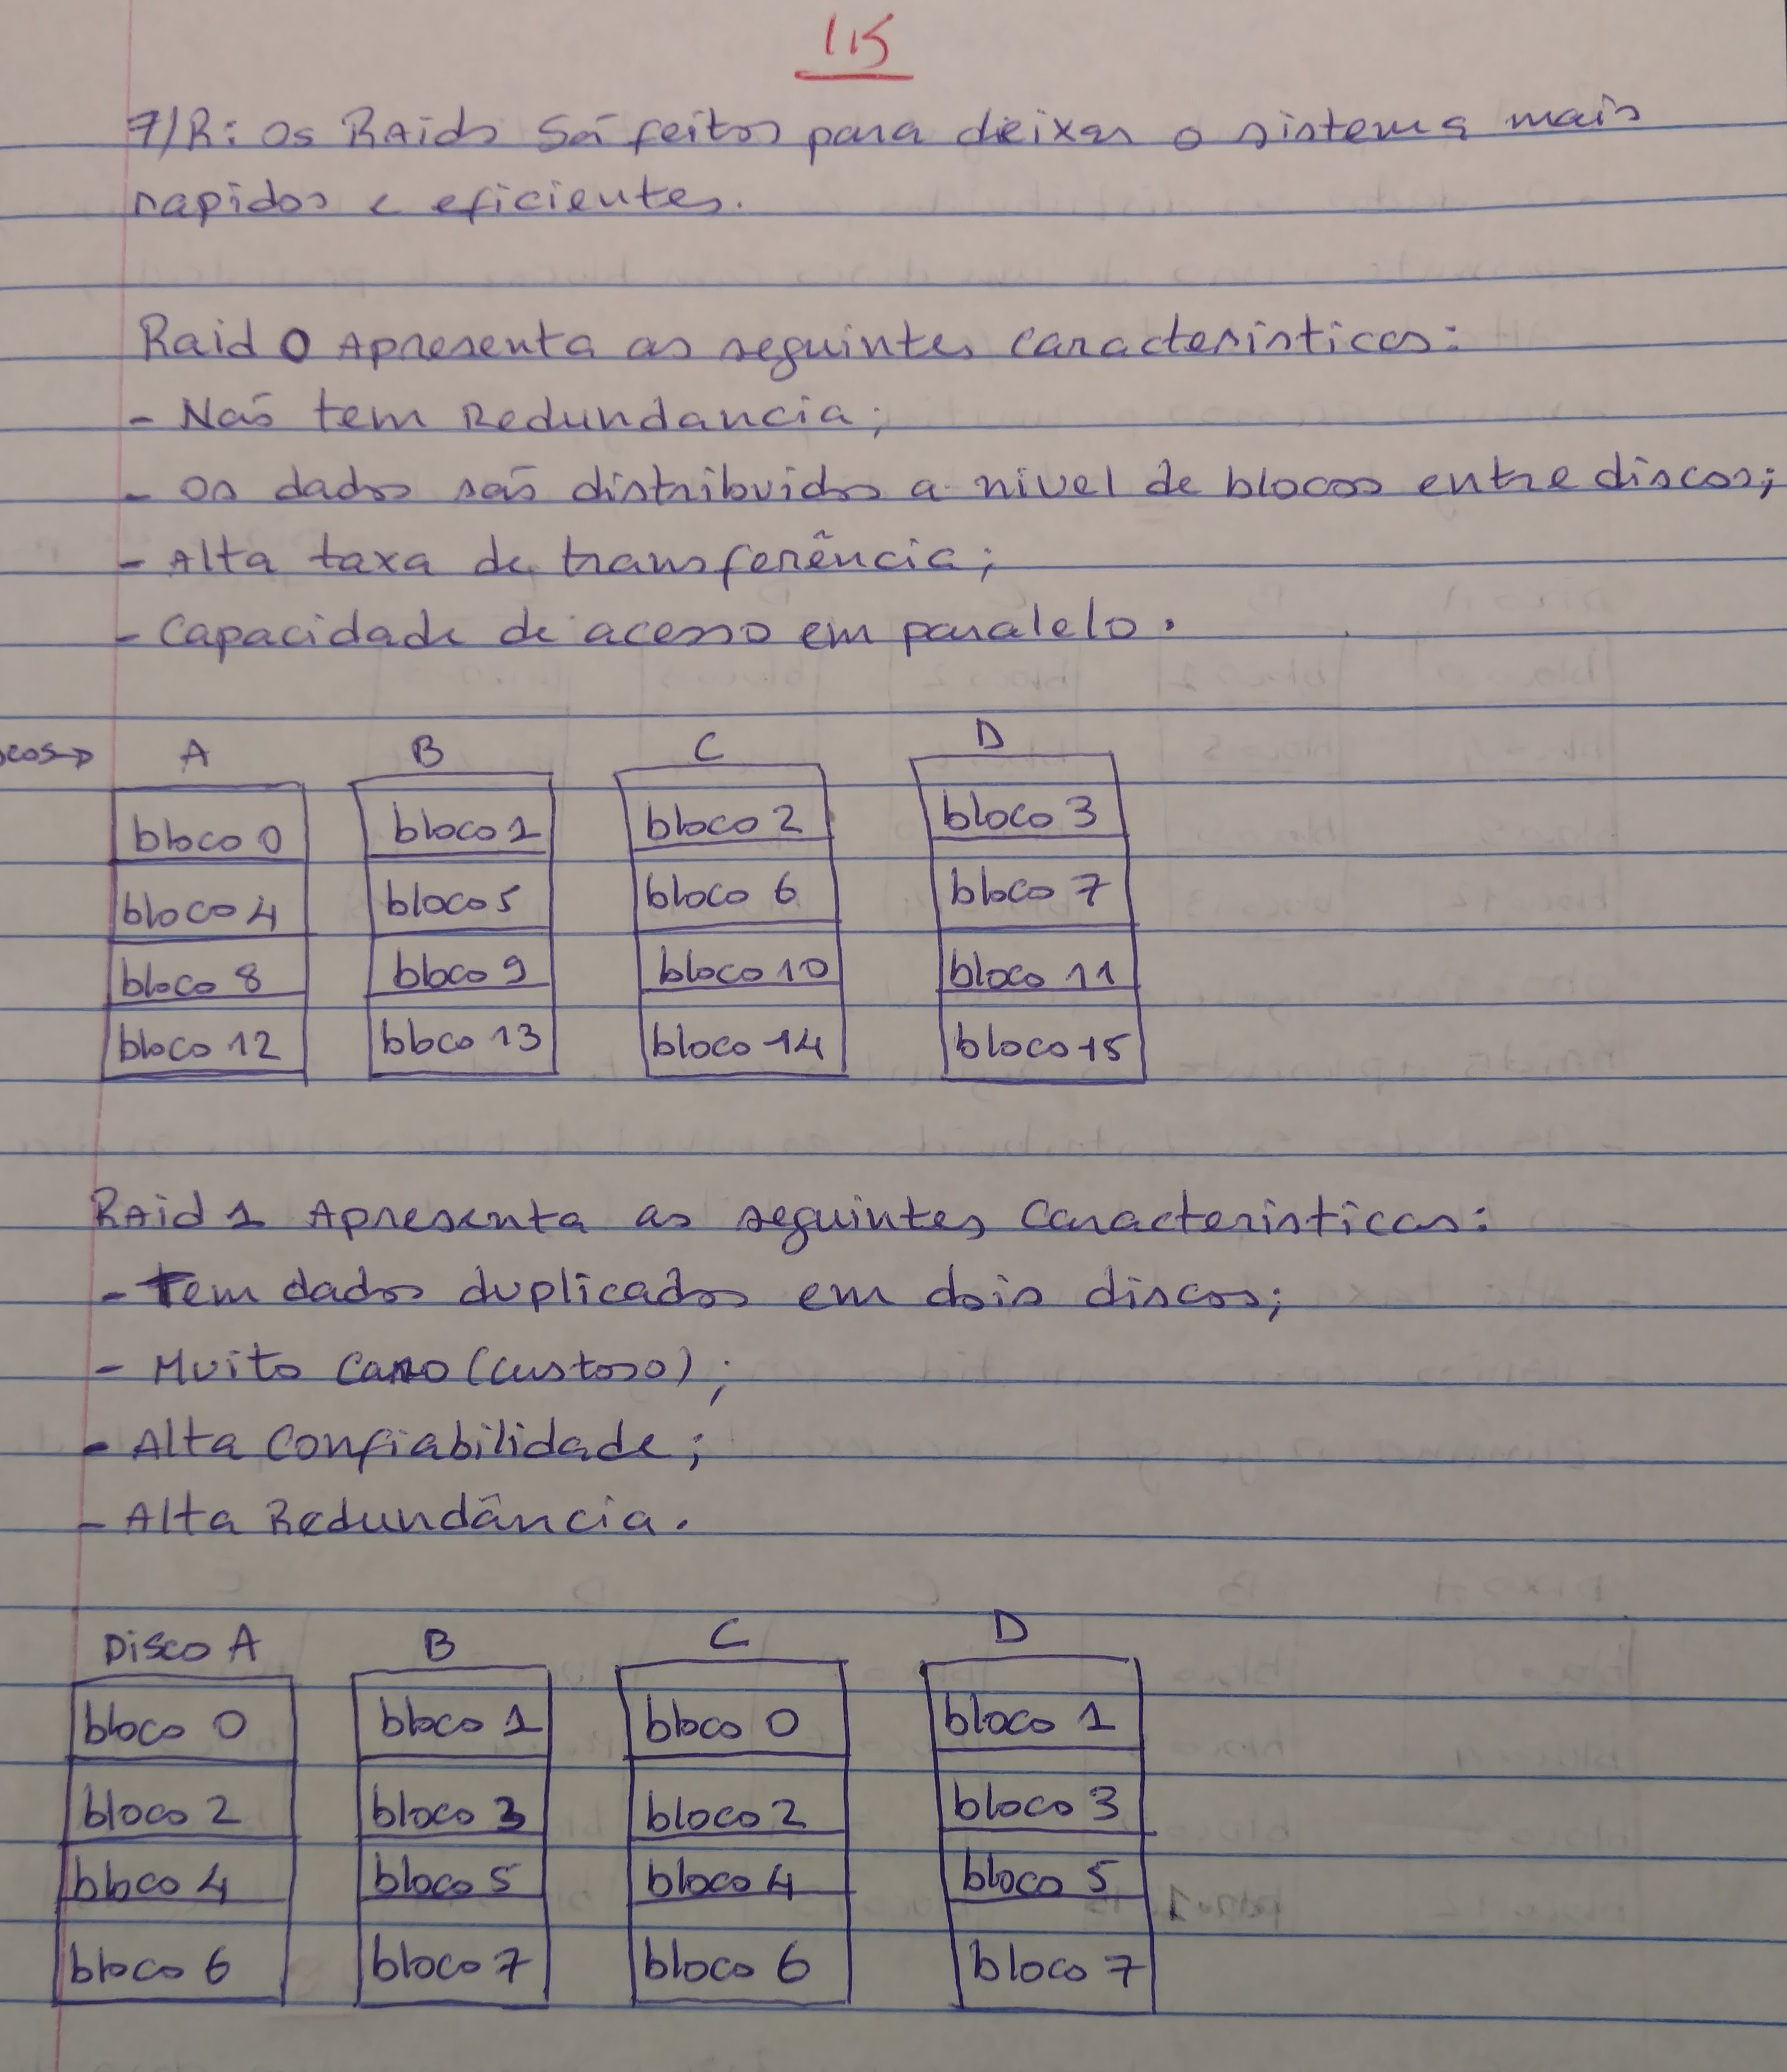 1,5
7/R: Os RAids Sã feitos para deixar o sistema mais
rapidos e eficientes.
Raid 0 Apresenta as seguintes caracteristicas:
- Não tem Redundancia;
- Os dados são distribuidos a nivel de blocos entre discos;
- Alta taxa de transferência;
- Capacidade de acesso em paralelo.
A B C D
bloco 0 bloco 1 bloco 2 bloco 3
bloco 4 bloco 5 bloco 6 bloco 7
bloco 8 bloco 9 bloco 10 bloco 11
bloco 12 bloco 13 bloco 14 bloco 15
RAid 1 Apresenta as seguintes Caracteristicas:
- Tem dados duplicados em dois discos;
- Muito Caro (custoso);
- Alta Confiabilidade;
- Alta Redundância.
Disco A B C D
bloco 0 bloco 1 bloco 0 bloco 1
bloco 2 bloco 3 bloco 2 bloco 3
bloco 4 bloco 5 bloco 4 bloco 5
bloco 6 bloco 7 bloco 6 bloco 7